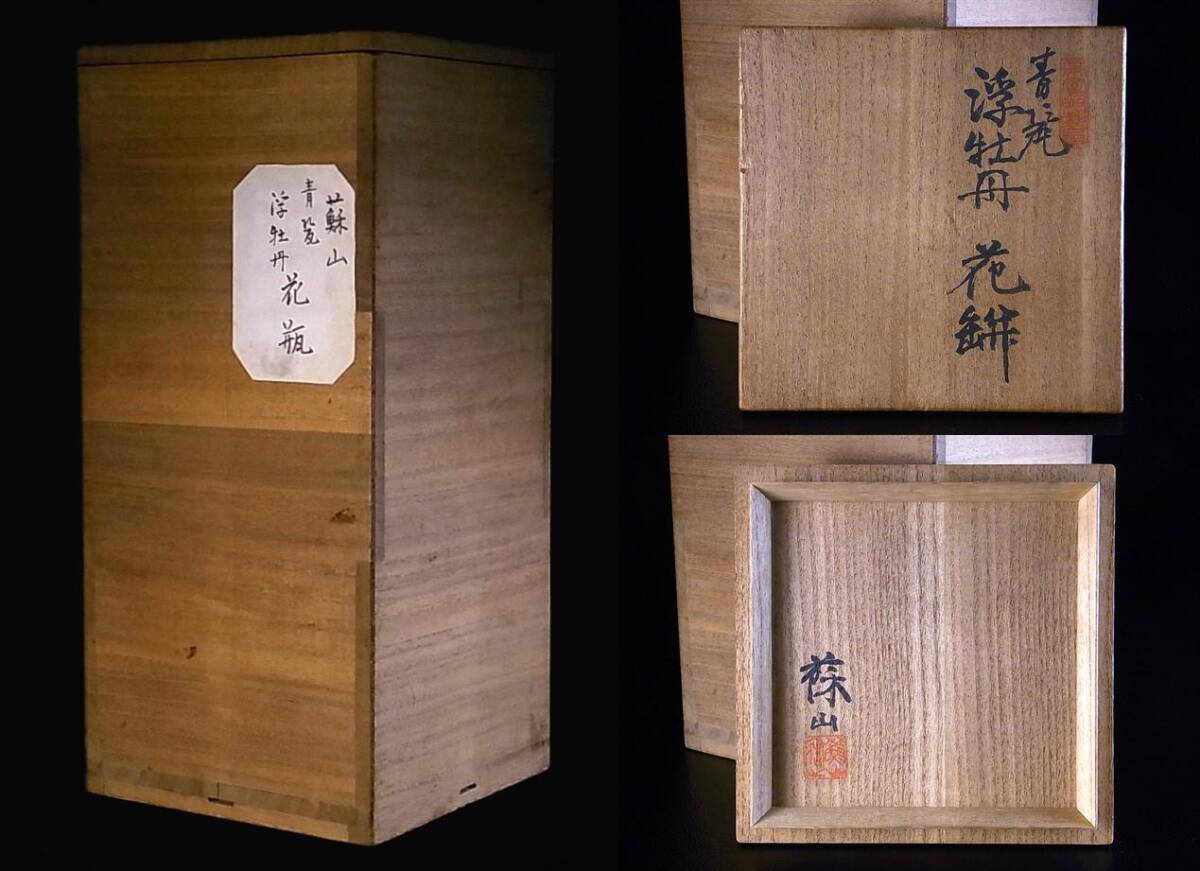 蘇山
青瓷
浮牡丹
花瓶
青瓷
浮牡丹
花缾
蘓山